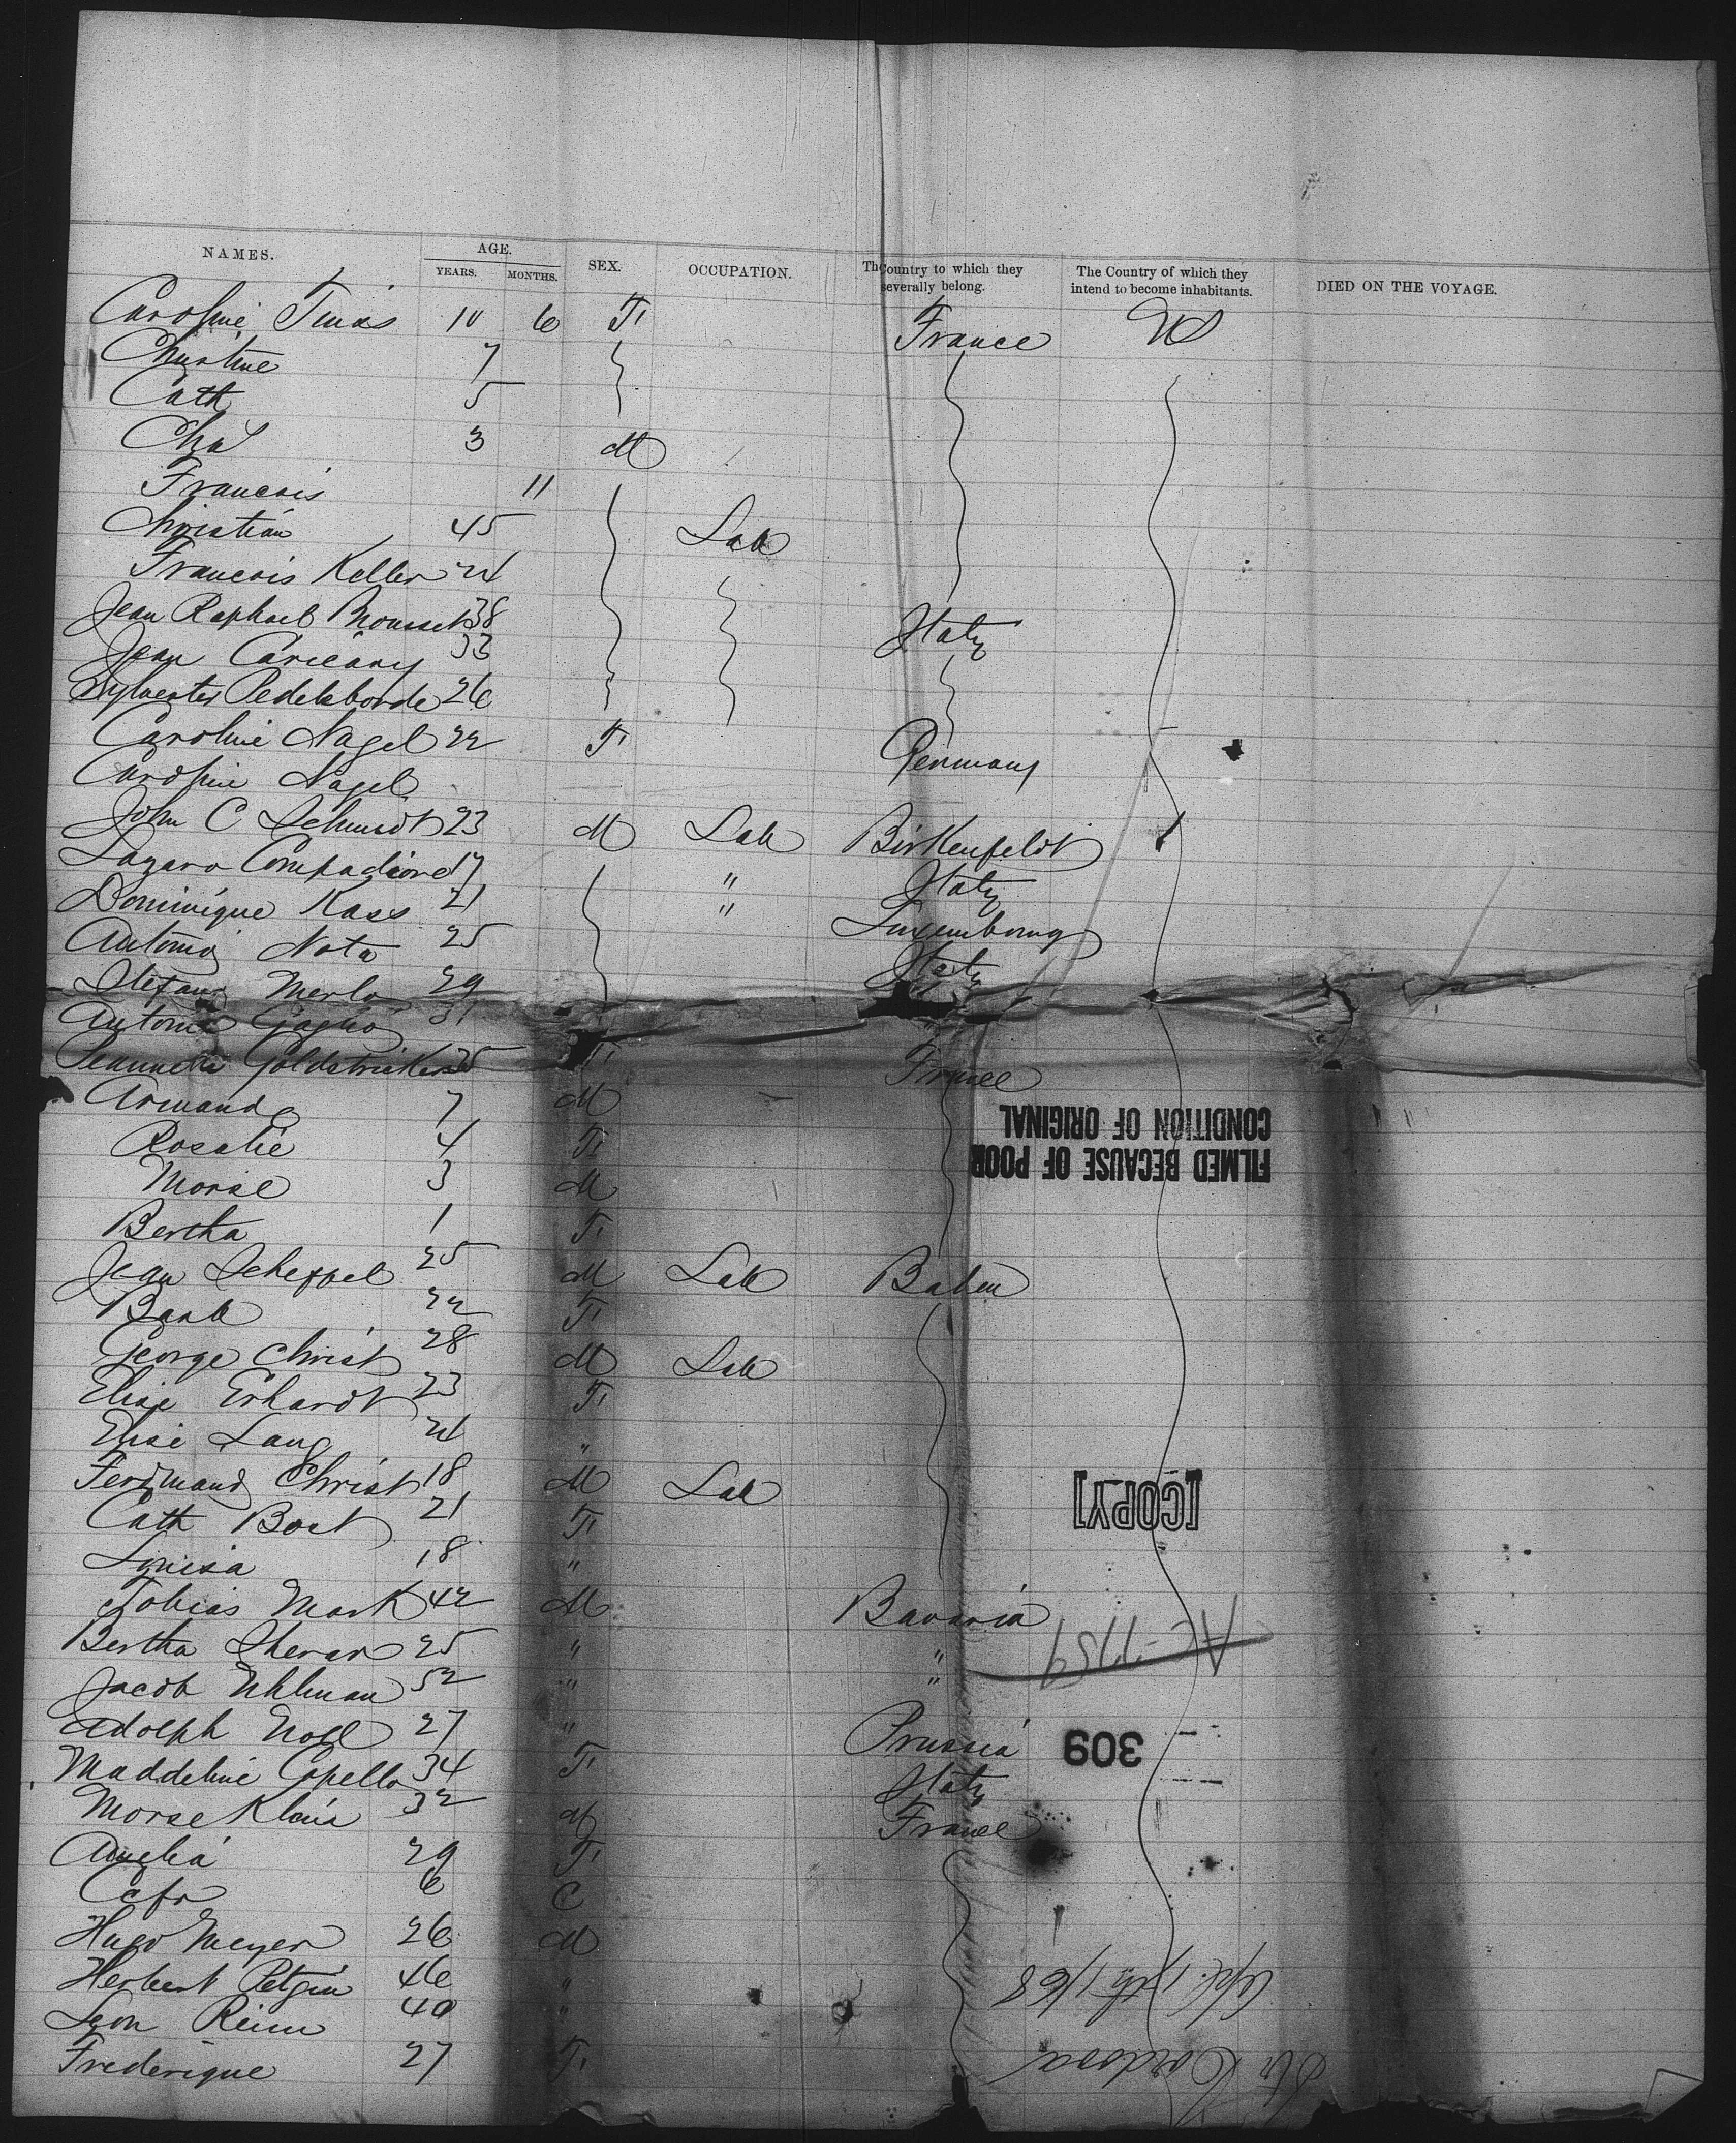 NAMES. AGE. SEX. OCCUPATION. The Country to which they severally belong. The Country of which they intend to become inhabitants. DIED ON THE VOYAGE.
YEARS. MONTHS.
Caroline 10 6 F France US
Christine 7
Cath 5
Chas 3 M
Francois 11
Christian 45 Lab
Francois Keller 24
Jean Raphael 38 Italy
Jean 33
Sylvester Pedelaborde 26
Caroline Nagel 22 F Germany
Caroline Nagel
John C Schmidt 23 M Lab Birkenfeldt
Lazaro 17 " Italy
Dominique Kass 21 " Luxembourg
Antonio Nota 25 Italy
Stefano Merlo 29
Antonio 31
Jeannette 35 F France
Armand 7 M
Rosalie 4 F
Morse 3 M
Bertha 1 F
Jean Scheppel 25 M Lab Baden
Barb 22 F
George Christ 28 M Lab
Elise Erhardt 23 F
Elise Lang 24 "
Ferdinand Christ 18 M Lab
Cath Bost 21 F
Louisa 18 "
Tobias Mark 42 M Bavaria
Bertha 25 " "
Jacob Uhlman 52 " "
Adolph Noel 27 " Prussia
Maddeline Capello 34 F Italy
Morse Klein 32 M France
Amelia 29 F
6 C
Hugo Meyer 26 M
Herbert 46 "
Leon 40 "
Frederique 27 F
FILMED BECAUSE OF POOR
CONDITION OF ORIGINAL
[COPY]
309